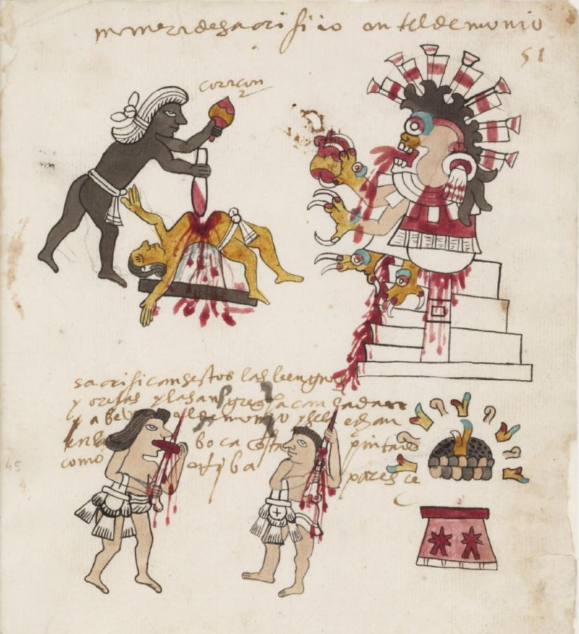 manera de sacrifiçio antel demonio
51
corazon
sacrificanse estos las lenguas
y orejas y la sangre la
y a beber al demonio
en la boca pintado
como arriba paresce
45